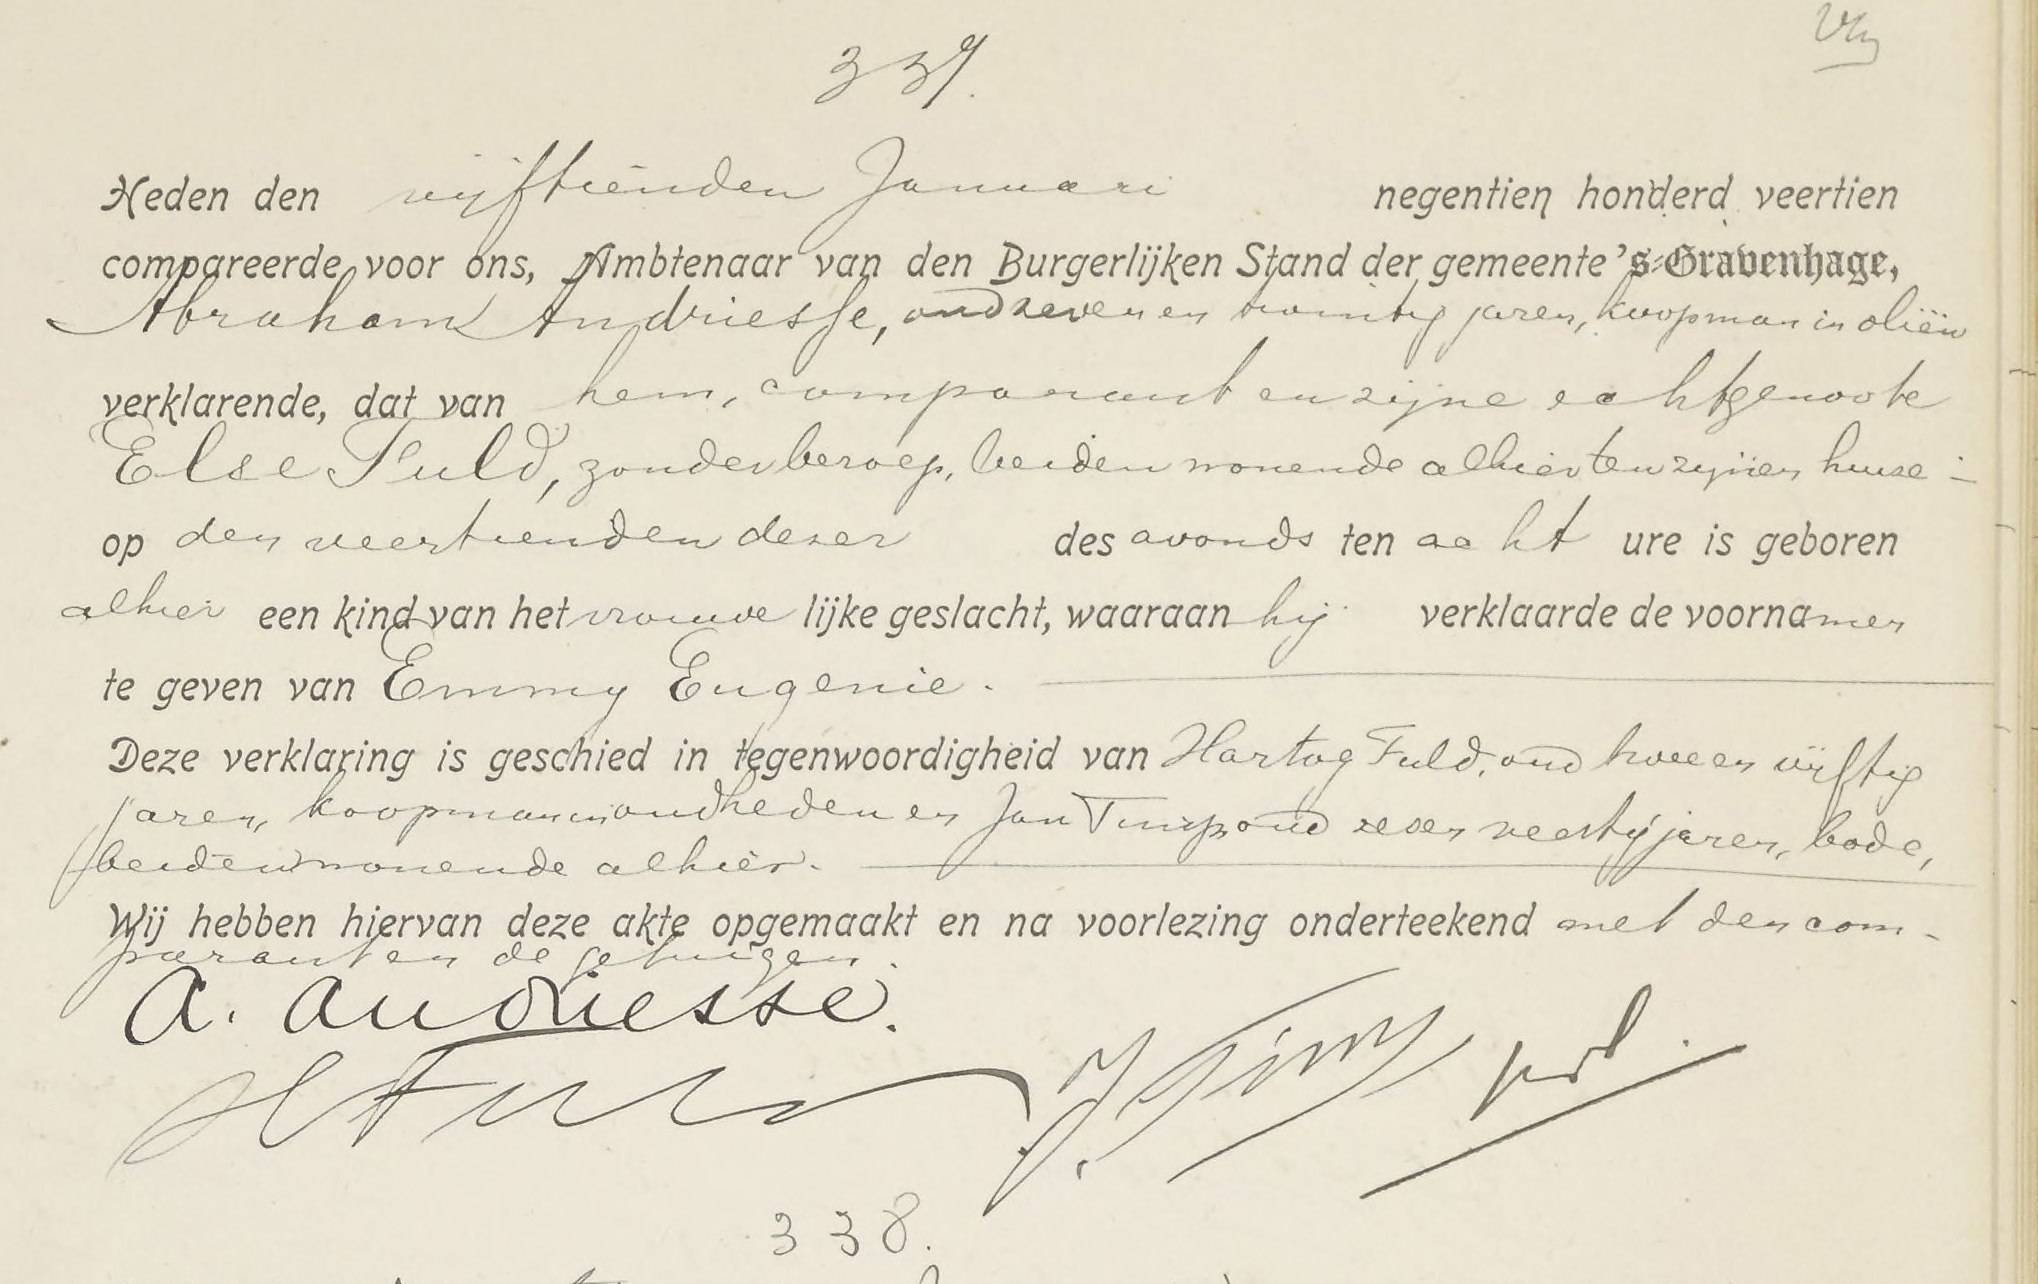 337.
Heden den vijftienden Januari negentien honderd veertien
compareerde voor ons, Ambtenaar van den Burgerlijken Stand der gemeente 's-Gravenhage,
Abraham Andriesse, oud zeven en twintig jaren, koopman in oliën
verklarende, dat van hem, comparant en zijne echtgenoote
Else Fuld, zonder beroep, beiden wonende alhier ten zijnen huize –
op den veertienden dezer des avonds ten acht ure is geboren
alhier een kind van het vrouwelijke geslacht, waaraan hij verklaarde de voornamen
te geven van Emmy Eugenie.
Deze verklaring is geschied in tegenwoordigheid van Hartog Fuld, oud twee en vijftig
jaren, koopman in oudheden en Jan oud zeven veertig jaren, bode,
beiden wonende alhier.
Wij hebben hiervan deze akte opgemaakt en na voorlezing onderteekend met den com-
parant en de getuigen.
A. Andriesse.
H Fuld
338.